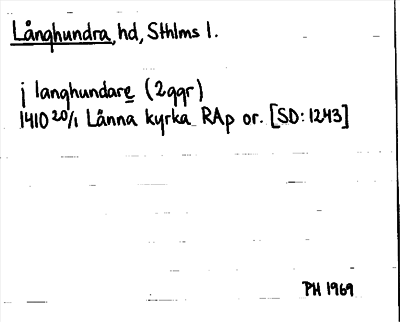 Långhundra, hd, Sthlms l.
j langhundare (2ggr)
1410 20/1 Länna kyrka RAp or. [SD: 1243]
PH 1969